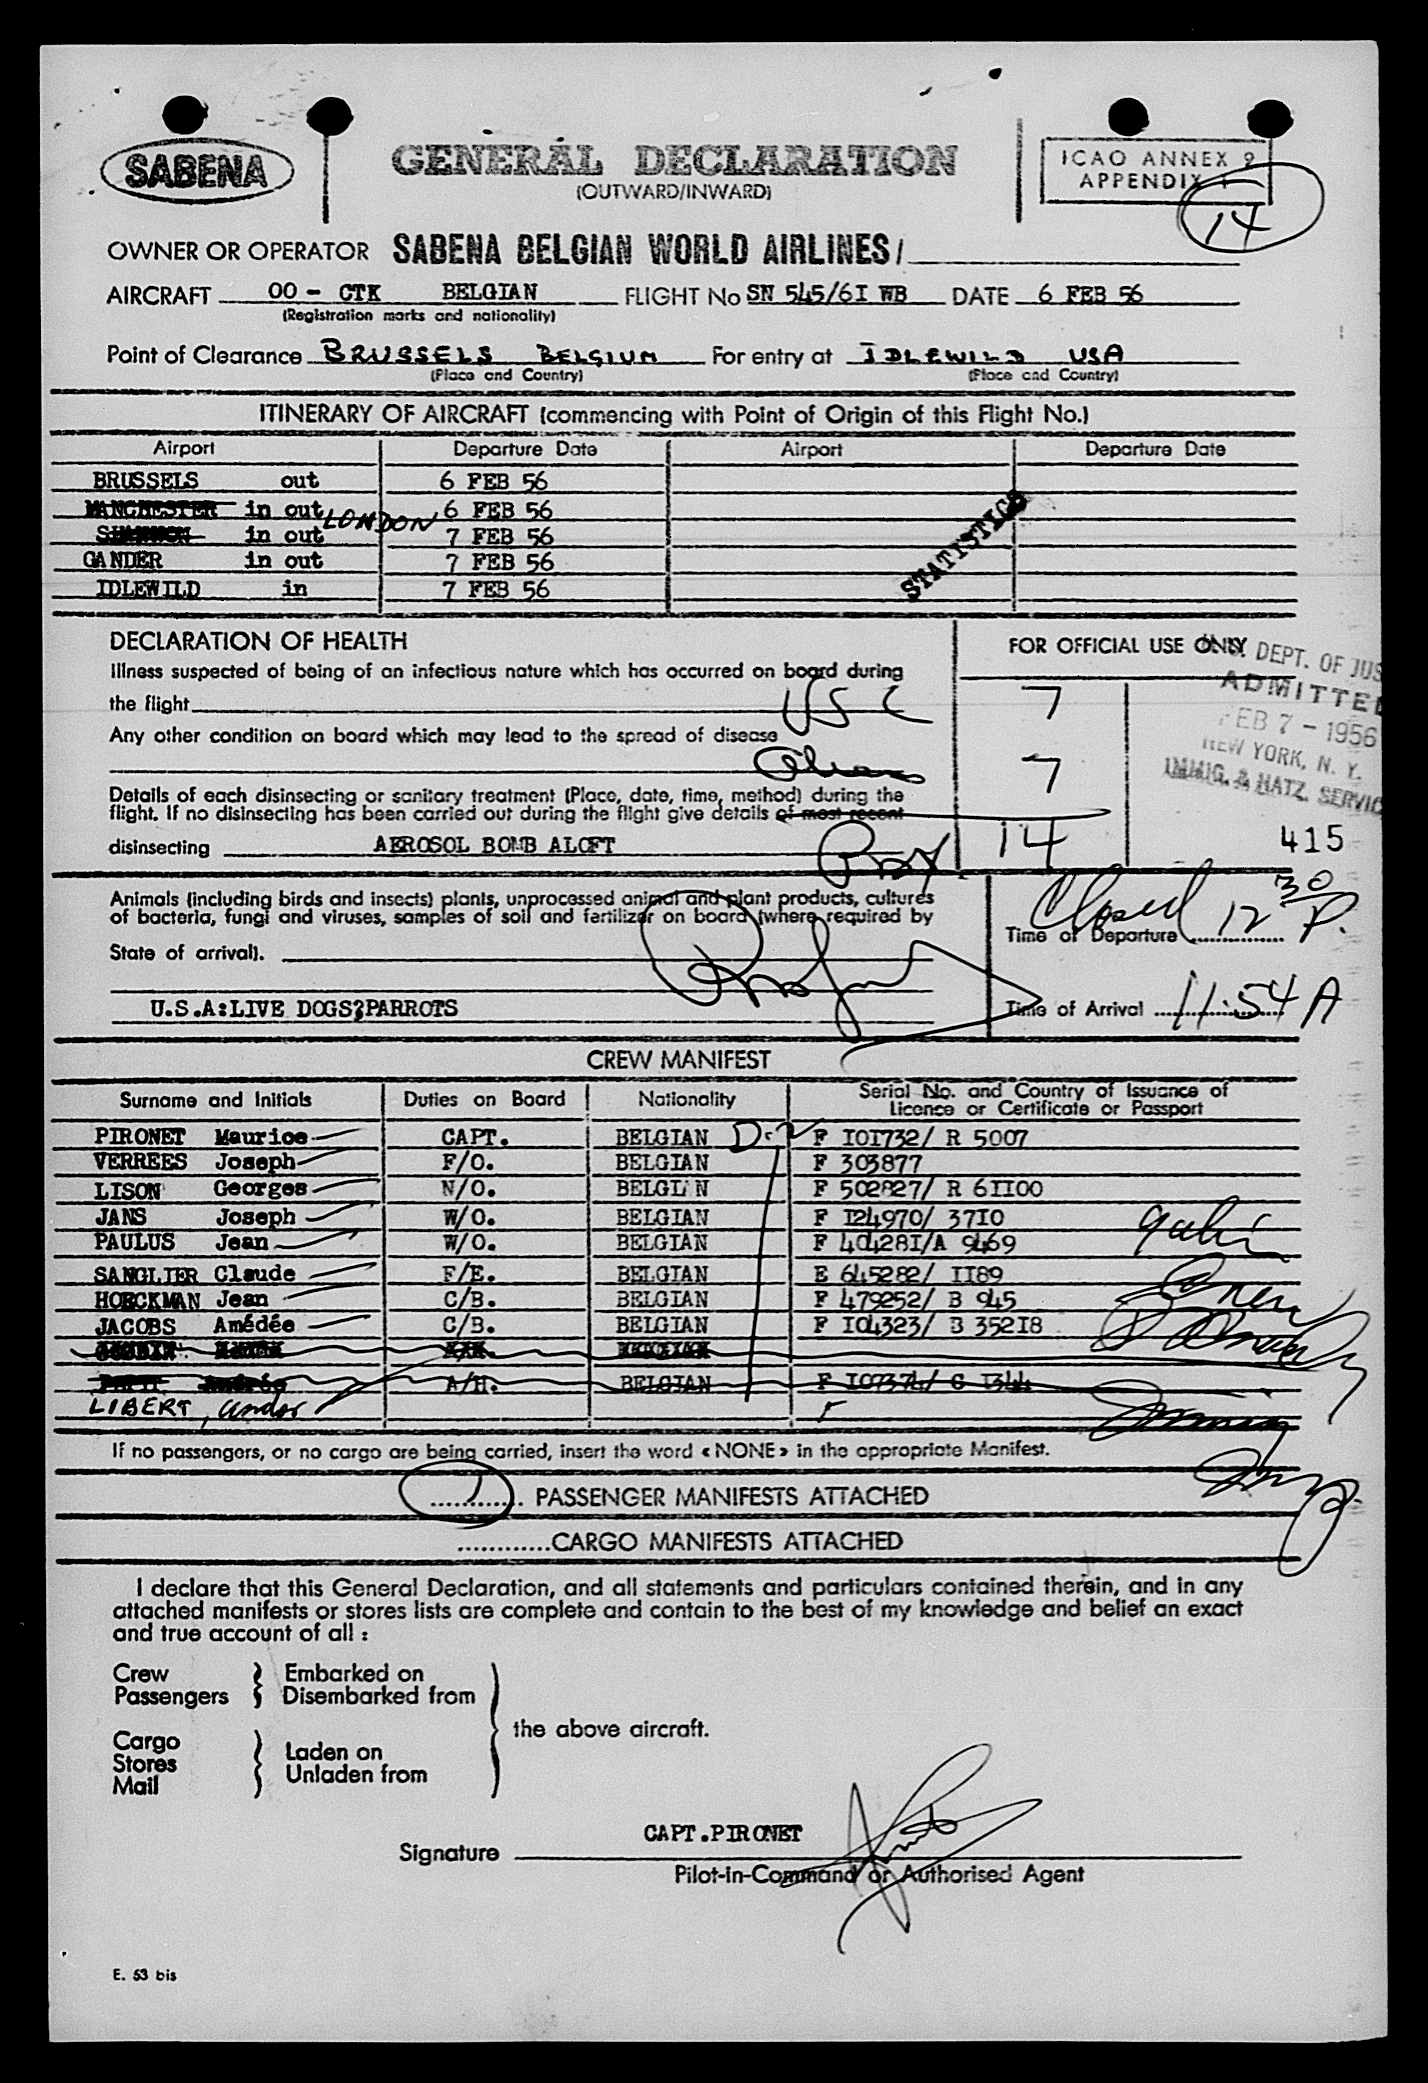 SABENA
GENERAL DECLARATION
(OUTWARD/INWARD)
ICAO ANNEX 9
APPENDIX 1
14
OWNER OR OPERATOR SABENA BELGIAN WORLD AIRLINES/
AIRCRAFT OO - CTK BELGIAN FLIGHT No SN 545/6I WB DATE 6 FEB 56
(Registration marks and nationality)
Point of Clearance BRUSSELS BELGIUM For entry at IDLEWILD USA
(Place and Country) (Place and Country)
ITINERARY OF AIRCRAFT (commencing with Point of Origin of this Flight No.)
Airport Departure Date Airport Departure Date
BRUSSELS out 6 FEB 56
MANCHESTER in out LONDON 6 FEB 56
SHANNON in out 7 FEB 56
GANDER in out 7 FEB 56
IDLEWILD in 7 FEB 56
STATISTICS
DECLARATION OF HEALTH
FOR OFFICIAL USE ONLY
Illness suspected of being of an infectious nature which has occurred on board during
the flight
USC 7
Any other condition on board which may lead to the spread of disease
Aliens 7
Details of each disinsecting or sanitary treatment (Place, date, time, method) during the
flight. If no disinsecting has been carried out during the flight give details of most recent
disinsecting AEROSOL BOMB ALOFT
14
DEPT. OF JUS
ADMITTED
FEB 7 - 1956
NEW YORK, N. Y.
IMMIG. & NATZ. SERVIC
415
Animals (including birds and insects) plants, unprocessed animal and plant products, cultures
of bacteria, fungi and viruses, samples of soil and fertilizer on board (where required by
State of arrival).
U.S.A:LIVE DOGS?PARROTS
Closed 12 30 P.
Time of Departure
Time of Arrival 11:54 A
CREW MANIFEST
Surname and Initials Duties on Board Nationality Serial No. and Country of Issuance of
Licence or Certificate or Passport
PIRONET Maurice CAPT. BELGIAN D-2 F IOI732/ R 5007
VERREES Joseph F/O. BELGIAN F 303877
LISON Georges N/O. BELGI N F 502827/ R 6II00
JANS Joseph W/O. BELGIAN F I24970/ 37I0
PAULUS Jean W/O. BELGIAN F 40428I/A 9469
SANGLIER Claude F/E. BELGIAN E 645282/ II89
HOECKMAN Jean C/B. BELGIAN F 479252/ B 945
JACOBS Amédée C/B. BELGIAN F I04323/ B 352I8
André A/H. BELGIAN F I09374/ C I344
LIBERT, Andor
If no passengers, or no cargo are being carried, insert the word « NONE » in the appropriate Manifest.
1 PASSENGER MANIFESTS ATTACHED
............CARGO MANIFESTS ATTACHED
I declare that this General Declaration, and all statements and particulars contained therein, and in any
attached manifests or stores lists are complete and contain to the best of my knowledge and belief an exact
and true account of all :
Crew Embarked on
Passengers Disembarked from
the above aircraft.
Cargo
Stores Laden on
Mail Unladen from
CAPT.PIRONET
Signature
Pilot-in-Command or Authorised Agent
E. 53 bis